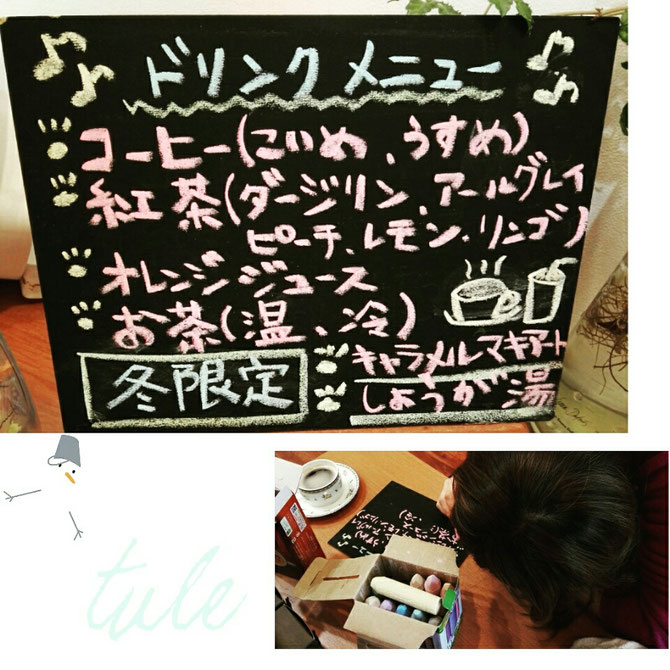 ドリンクメニュー
コーヒー(こいめ、うすめ)
紅茶(ダージリン、アールグレイ
ピーチ、レモン、リンゴ)
オレンジジュース
お茶(温、冷)
冬限定
キャラメルマキアート
しょうが湯
tule